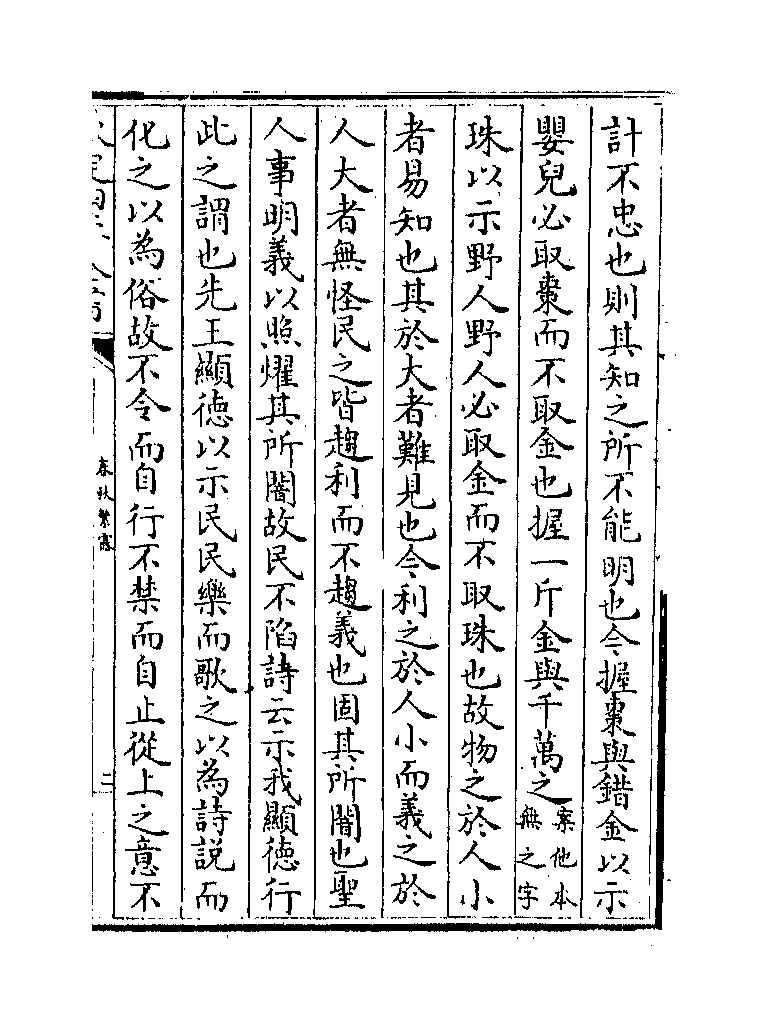 計不忠也則其知之所不能明也今握棗與錯金以示
嬰兒必取棗而不取金也握一斤金與千萬之案他本無之字
珠以示野人野人必取金而不取珠也故物之於人小
者易知也其於大者難見也今利之於人小而義之於
人大者無怪民之皆趨利而不趨義也固其所闇也聖
人事明義以照燿其所闇故民不陷詩云示我顯徳行
此之謂也先王顯徳以示民民樂而歌之以為詩説而
化之以為俗故不令而自行不禁而自止從上之意不
春秋繁露
二